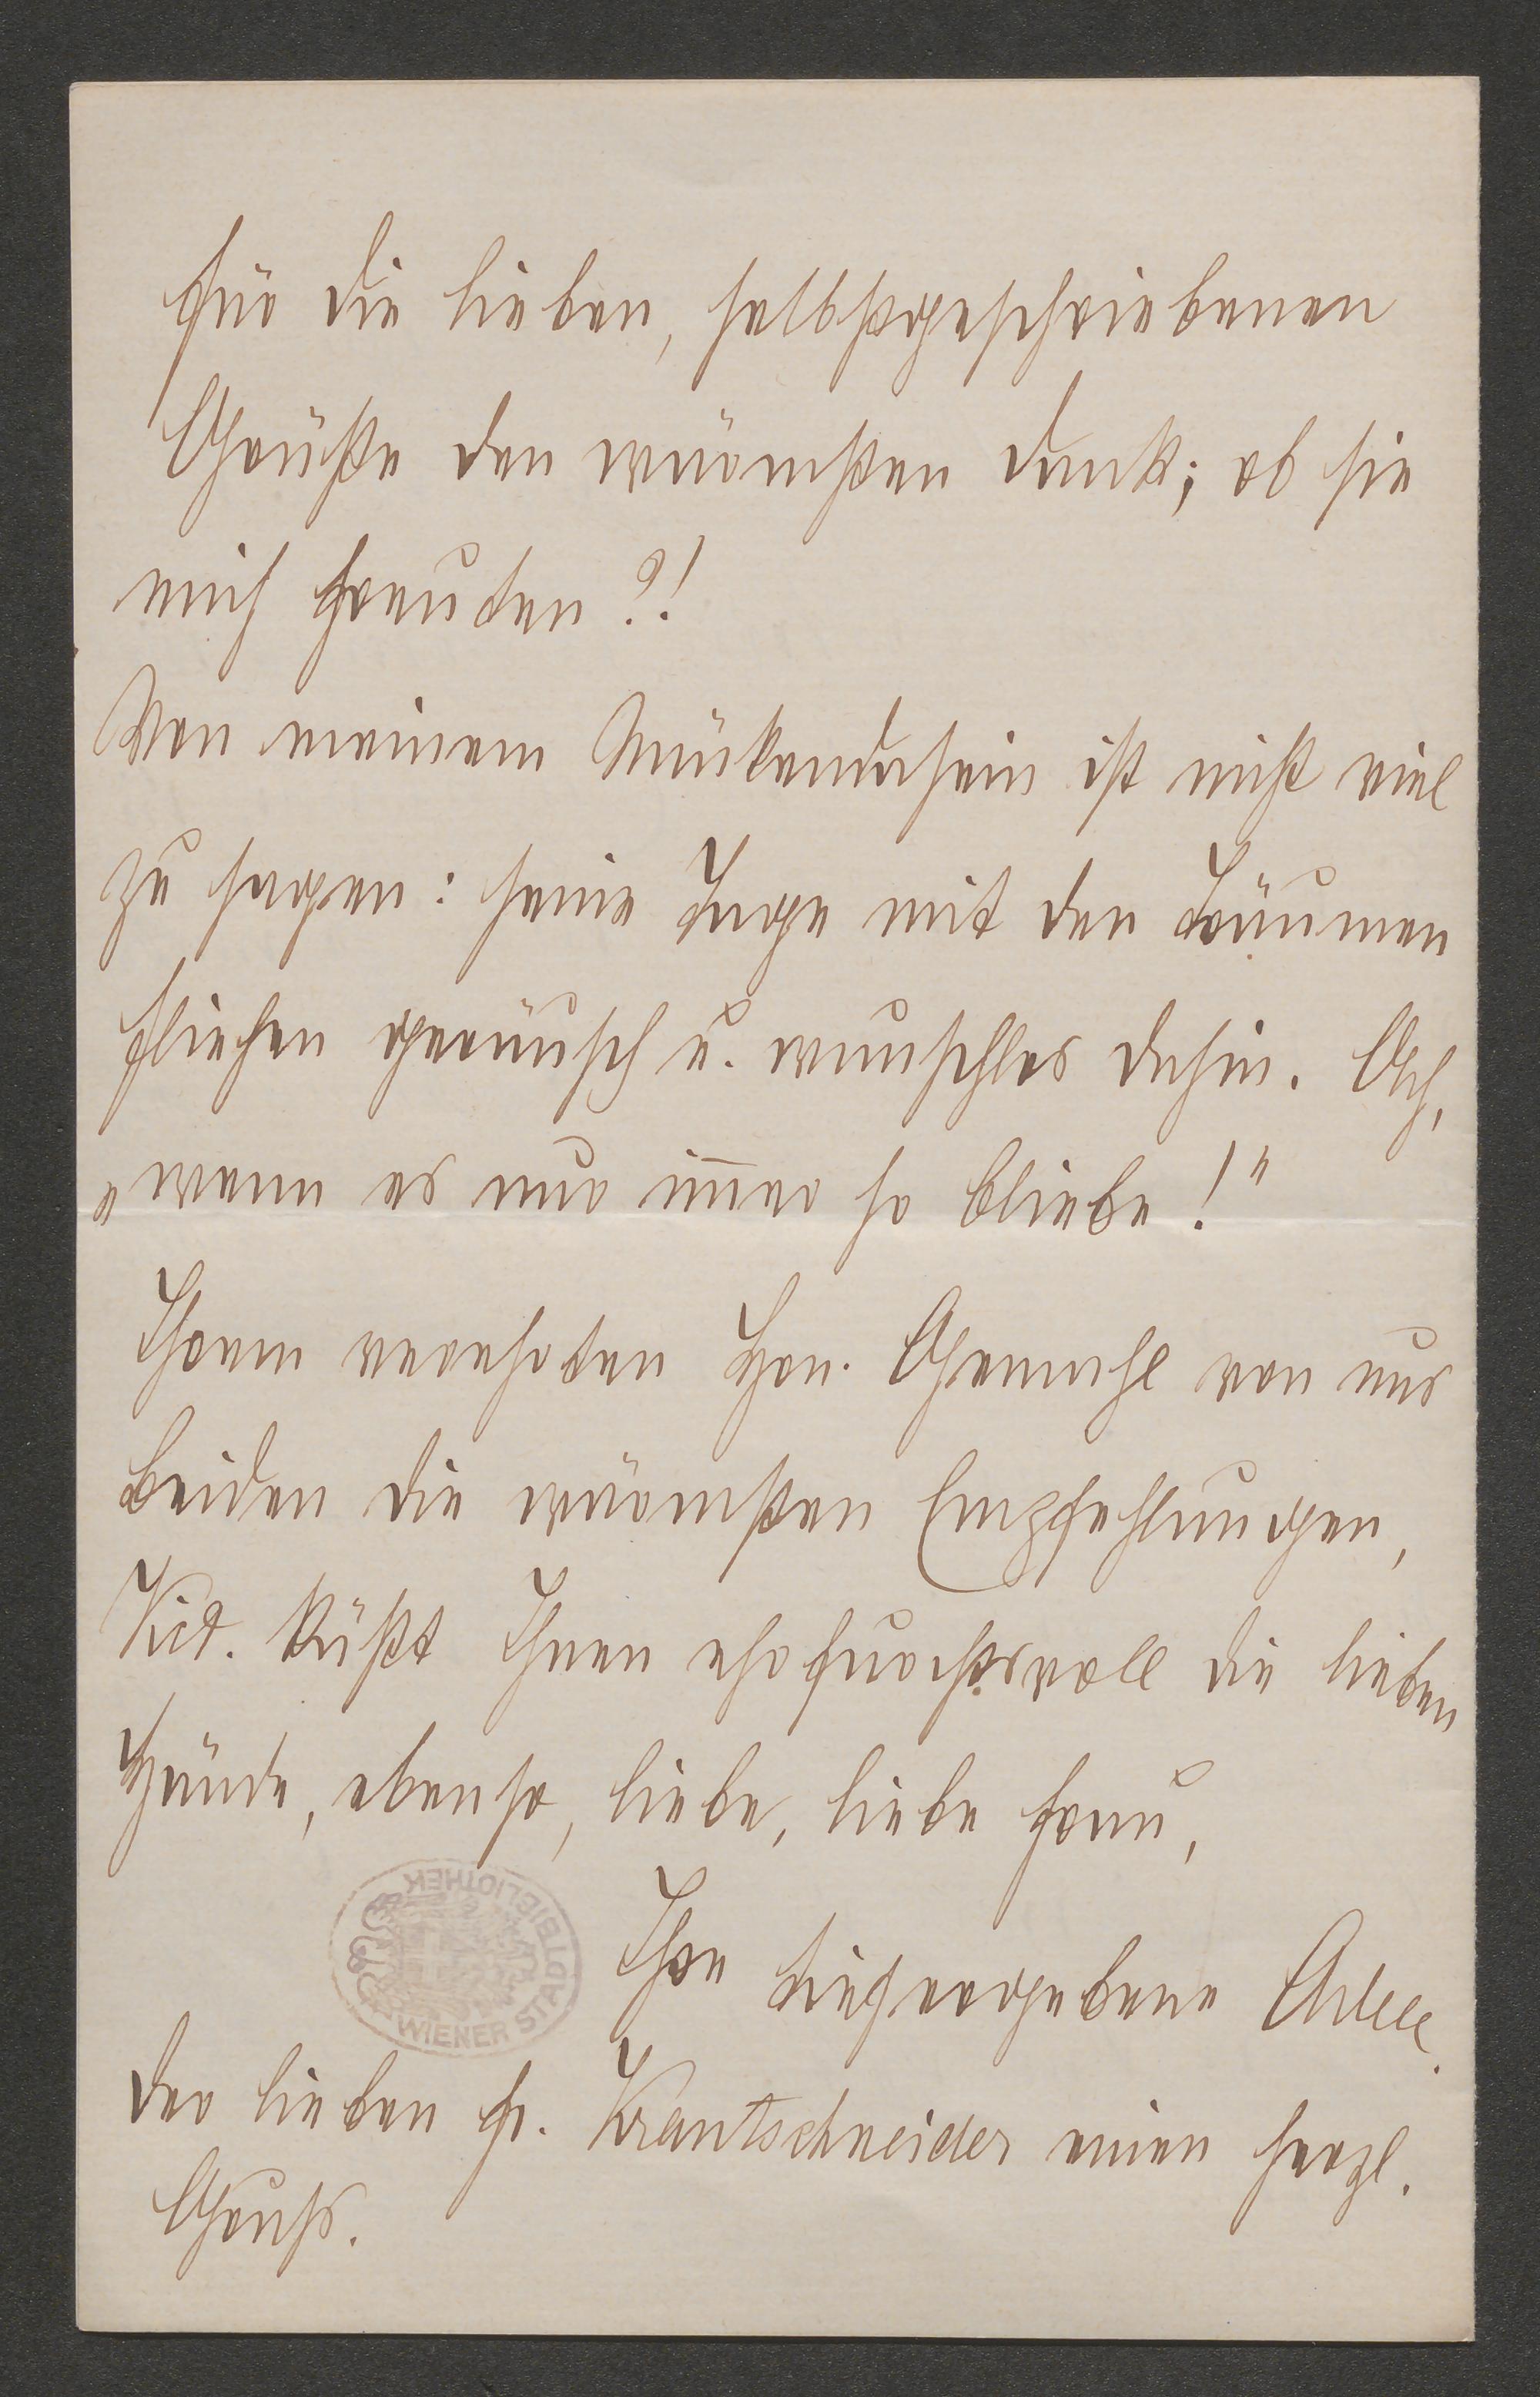 für die lieben, selbstgeschriebenen
Grüße den wärmsten Dank; ob sie
mich freuten?!
Von meinem Mückendasein ist nicht viel
zu sagen: seine Tage mit den Träumen
fliehen geräusch u. wunschlos dahin. Ach,
„wenn es nur im̅er so bliebe!"
Ihrem verehrten Hrn. Gemahl von uns
beiden die wärmsten Empfehlungen,
küßt Ihnen ehrfurchtsvoll die lieben
Hände, ebenso, liebe, liebe Frau,
Ihre tiefergebene
Der lieben Fr. Krautschneider einen herzl.
Gruß.
WIENER STADTBIBLIOTHEK